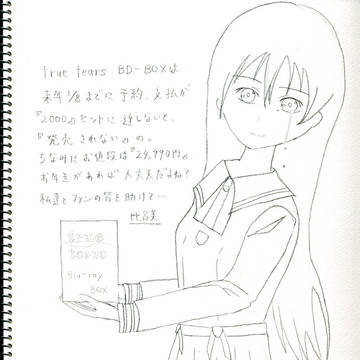 true tears BD-BOXは
来年1/8までに予約、支払が
『2000』セットに達しないと、
『発売されない』の。
ちなみにお値段は『29,990円』
お年玉があれば大丈夫だよね?
私達とファンの皆を助けて…
比呂美
true
tears
Blu-ray
BOX